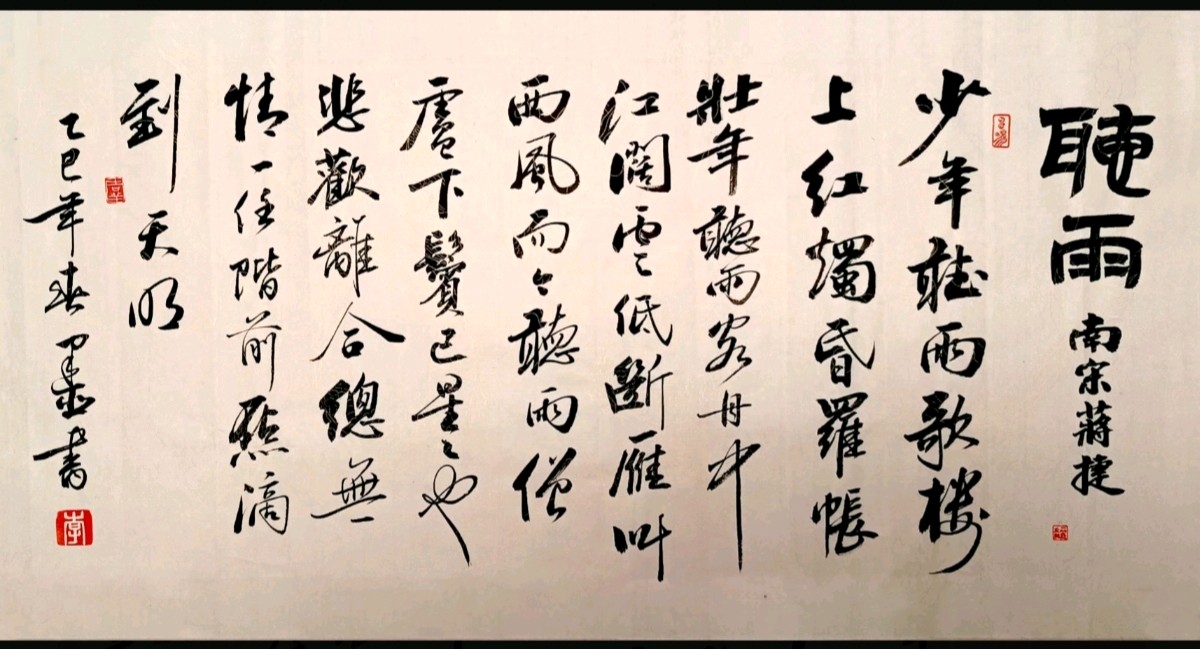 聽雨 南宋蔣捷
少年聽雨歌樓
上红燭昏羅帳
壯年聽雨客舟中
江闊雲低斷雁叫
西風而今聽雨僧
盧下鬢已星々也
悲歡離合總無
情一任階前點滴
到天明
乙巳年春墨書
李